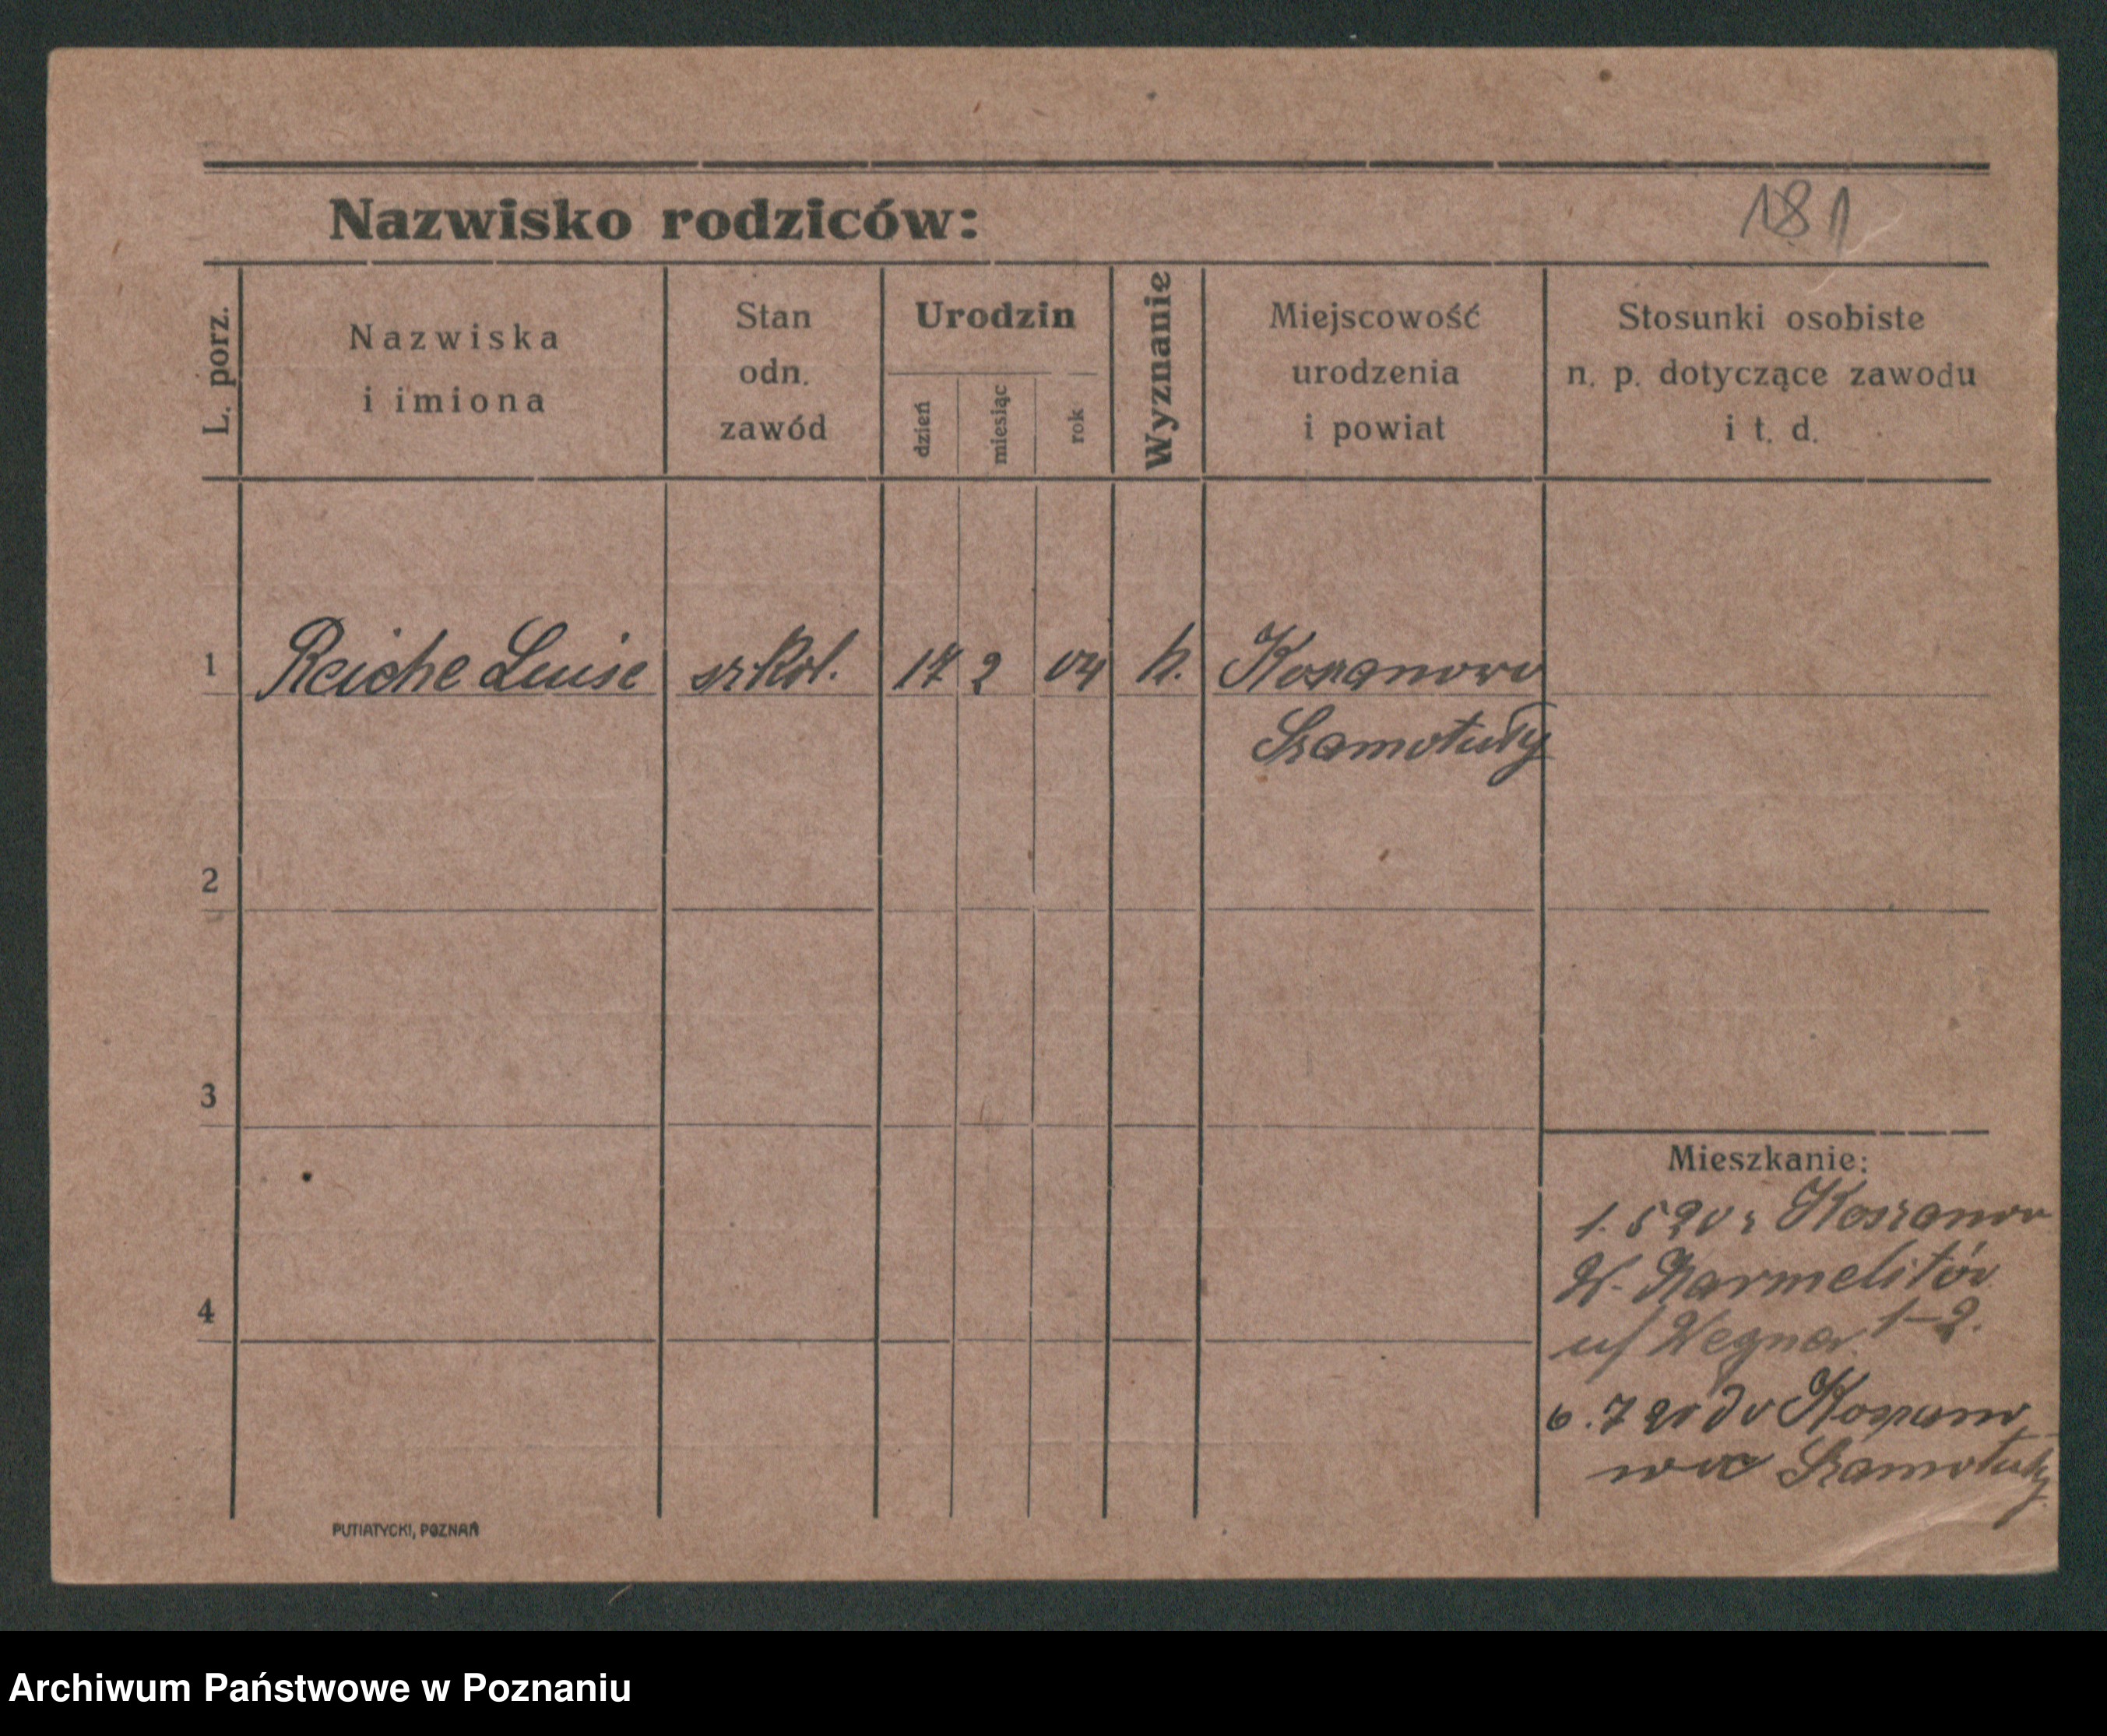 181
Nazwisko rodziców:
L. porz.
Nazwiska
i imiona
Stan
odn.
zawód
Urodzin
dzień
miesiąc
rok
Wyznanie
Miejscowość
urodzenia
i powiat
Stosunki osobiste
n. p. dotyczące zawodu
i t. d.
1 Reiche Luise szkol. 17 2 04 k. Koszanowo
Szamotuły
2
3
Mieszkanie:
1.5 20 z Koszanow
W. Karmelitów
4
u/ Wegner 1-2.
6.7 20 do
Szamotuły
PUTIATYCKI, POZNAŃ
Archiwum Państwowe w Poznaniu